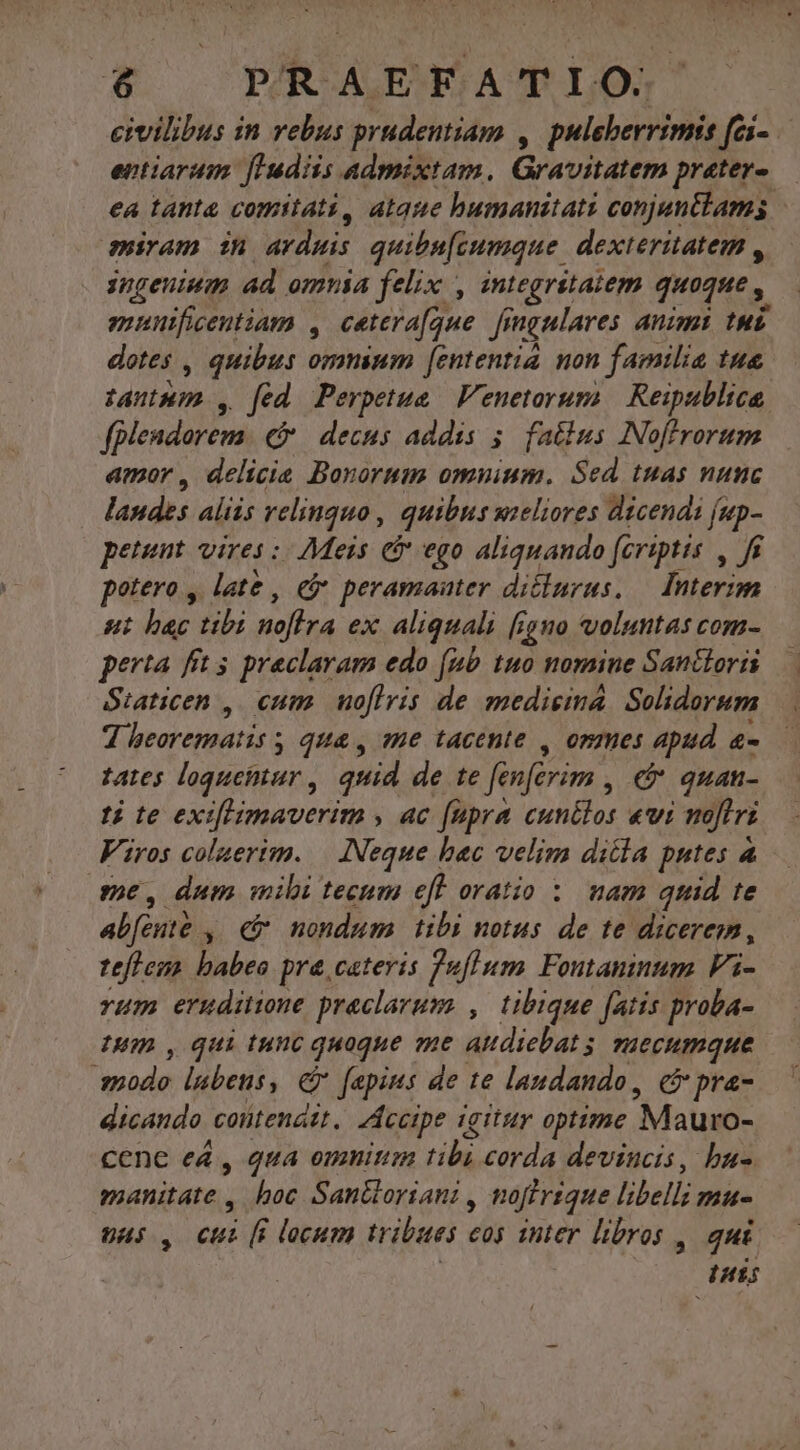 6 PRAEFATIO.
civilibus in rebus prudentiam , pulcherrimis ſci-
entiarum ſtudiis admixtam. Gravitatem præter-
ea tantæ comitati, atque humanitati conjunctam;
miram in arduis quibuſcumque dexteritatem ,
ingenium ad omnia felix , integritatem quoque ,
munificentiam , cæteraſque ſingulares animi tui
dotes , quibus omnium ſententiâ non familiæ tuæ
tantum , ſed Perpetuæ Venetorum Reipublicæ
ſplendorem & decus addis ; factus Noſtrorum
amor , deliciæ Bonorum omnium. Sed tuas nunc
laudes aliis relinquo , quibus meliores dicendi ſup-
petunt vires : Meis & ego aliquando ſcriptis , ſi
potero , latè , & peramanter dicturus. Interim
ut hæc tibi noſtra ex aliquali ſigno voluntas com-
perta ſit ; præclaram edo ſub tuo nomine Sanctorii
Staticen , cum noſtris de medicinâ Solidorum
Theorematis ; quæ , me tacente , omnes apud æ-
tates loquentur , quid de te ſenſerim , & quan-
ti te exiſtimaverim , ac ſupra cunctos ævi noſtri
Viros coluerim. Neque hæc velim dicta putes à
me , dum mihi tecum eſt oratio : nam quid te
abſente , & nondum tibi notus de te dicerem ,
teſtem habeo præ cæteris Juſtum Fontaninum Vi-
rum eruditione præclarum , tibique ſatis proba-
tum , qui tunc quoque me audiebat ; mecumque
modo lubens, & ſæpius de te laudando , & præ-
dicando contendit. Accipe igitur optime Mauro-
cene eâ , quâ omnium tibi corda devincis , hu-
manitate , hoc Sanctoriani , noſtrique libelli mu-
nus , cui ſi locum tribues eos inter libros , qui
tuis